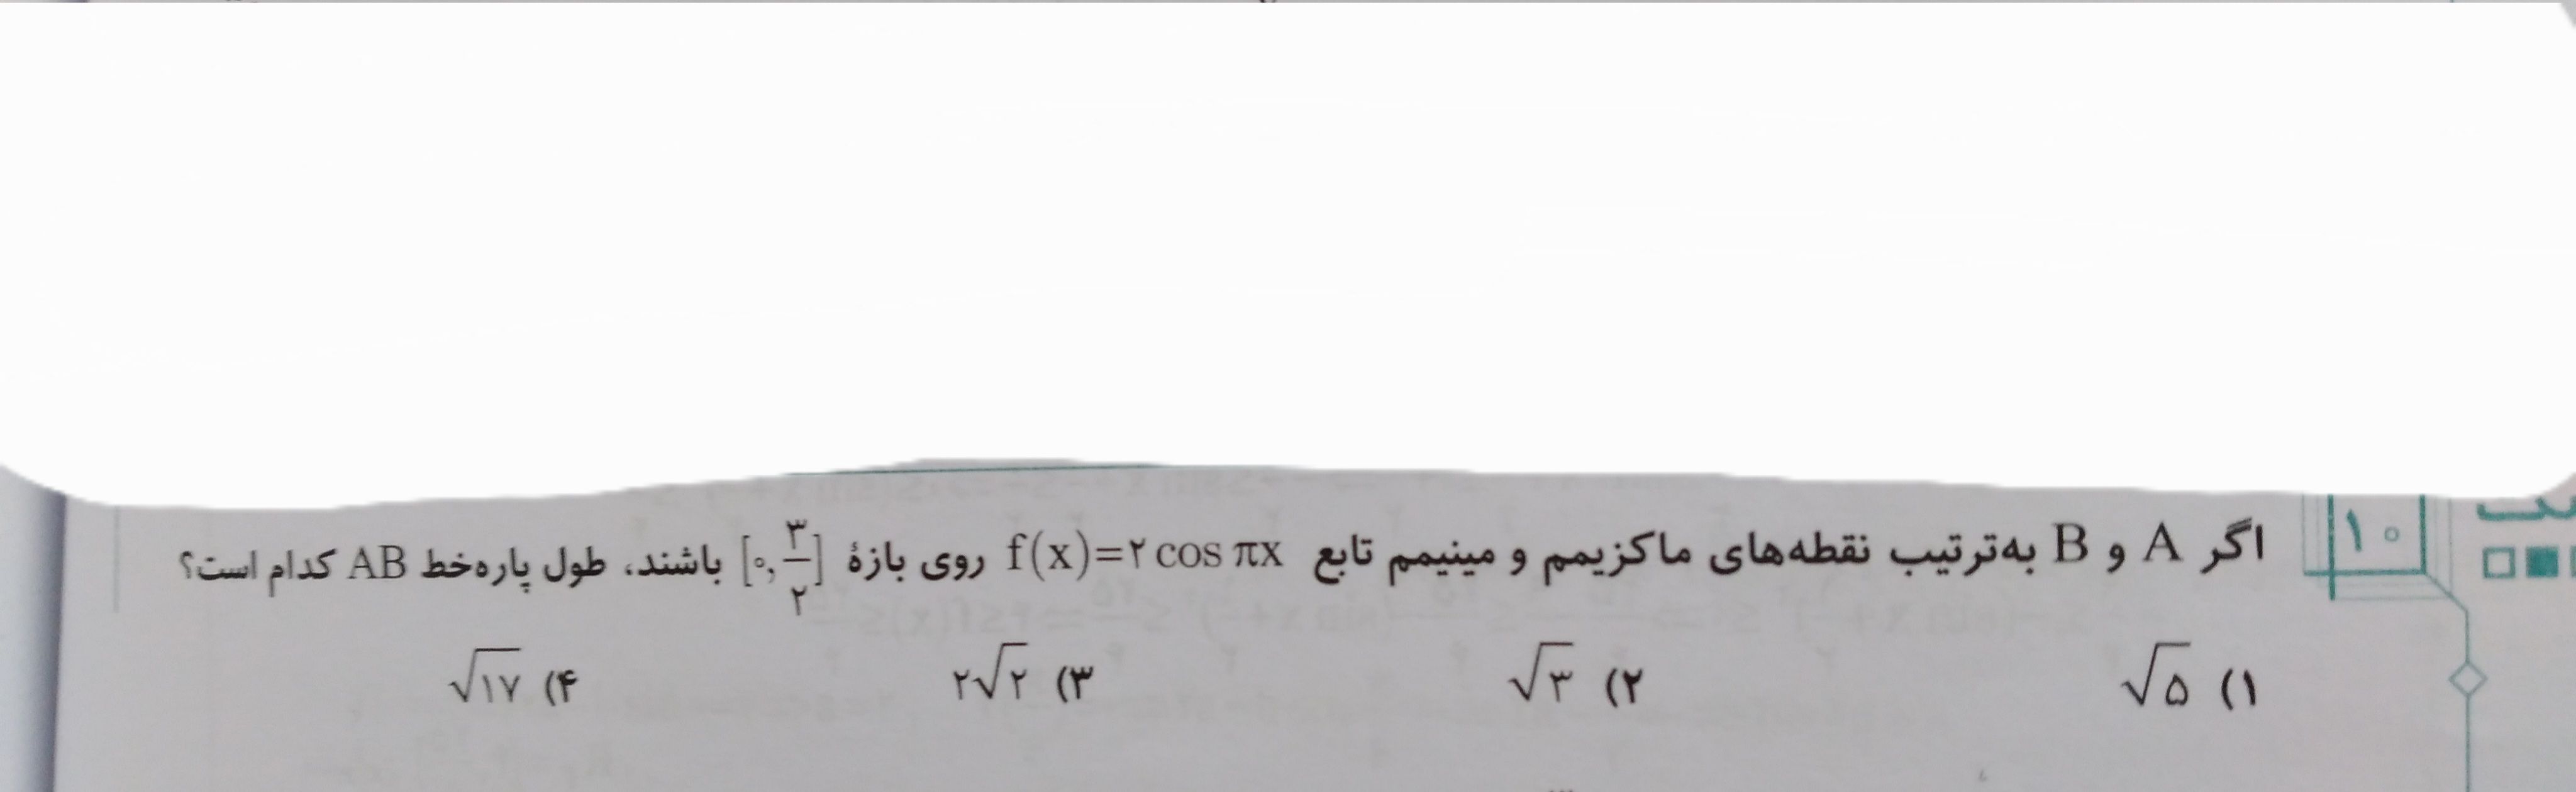 ۱۰ اگر A و B به‌ترتیب نقطه‌های ماکزیمم و مینیمم تابع f(x)=۲cos πx روی بازهٔ [۰, ۳/۲] باشند، طول پاره‌خط AB کدام است؟
۱) √۵ ۲) √۳ ۳) ۲√۲ ۴) √۱۷